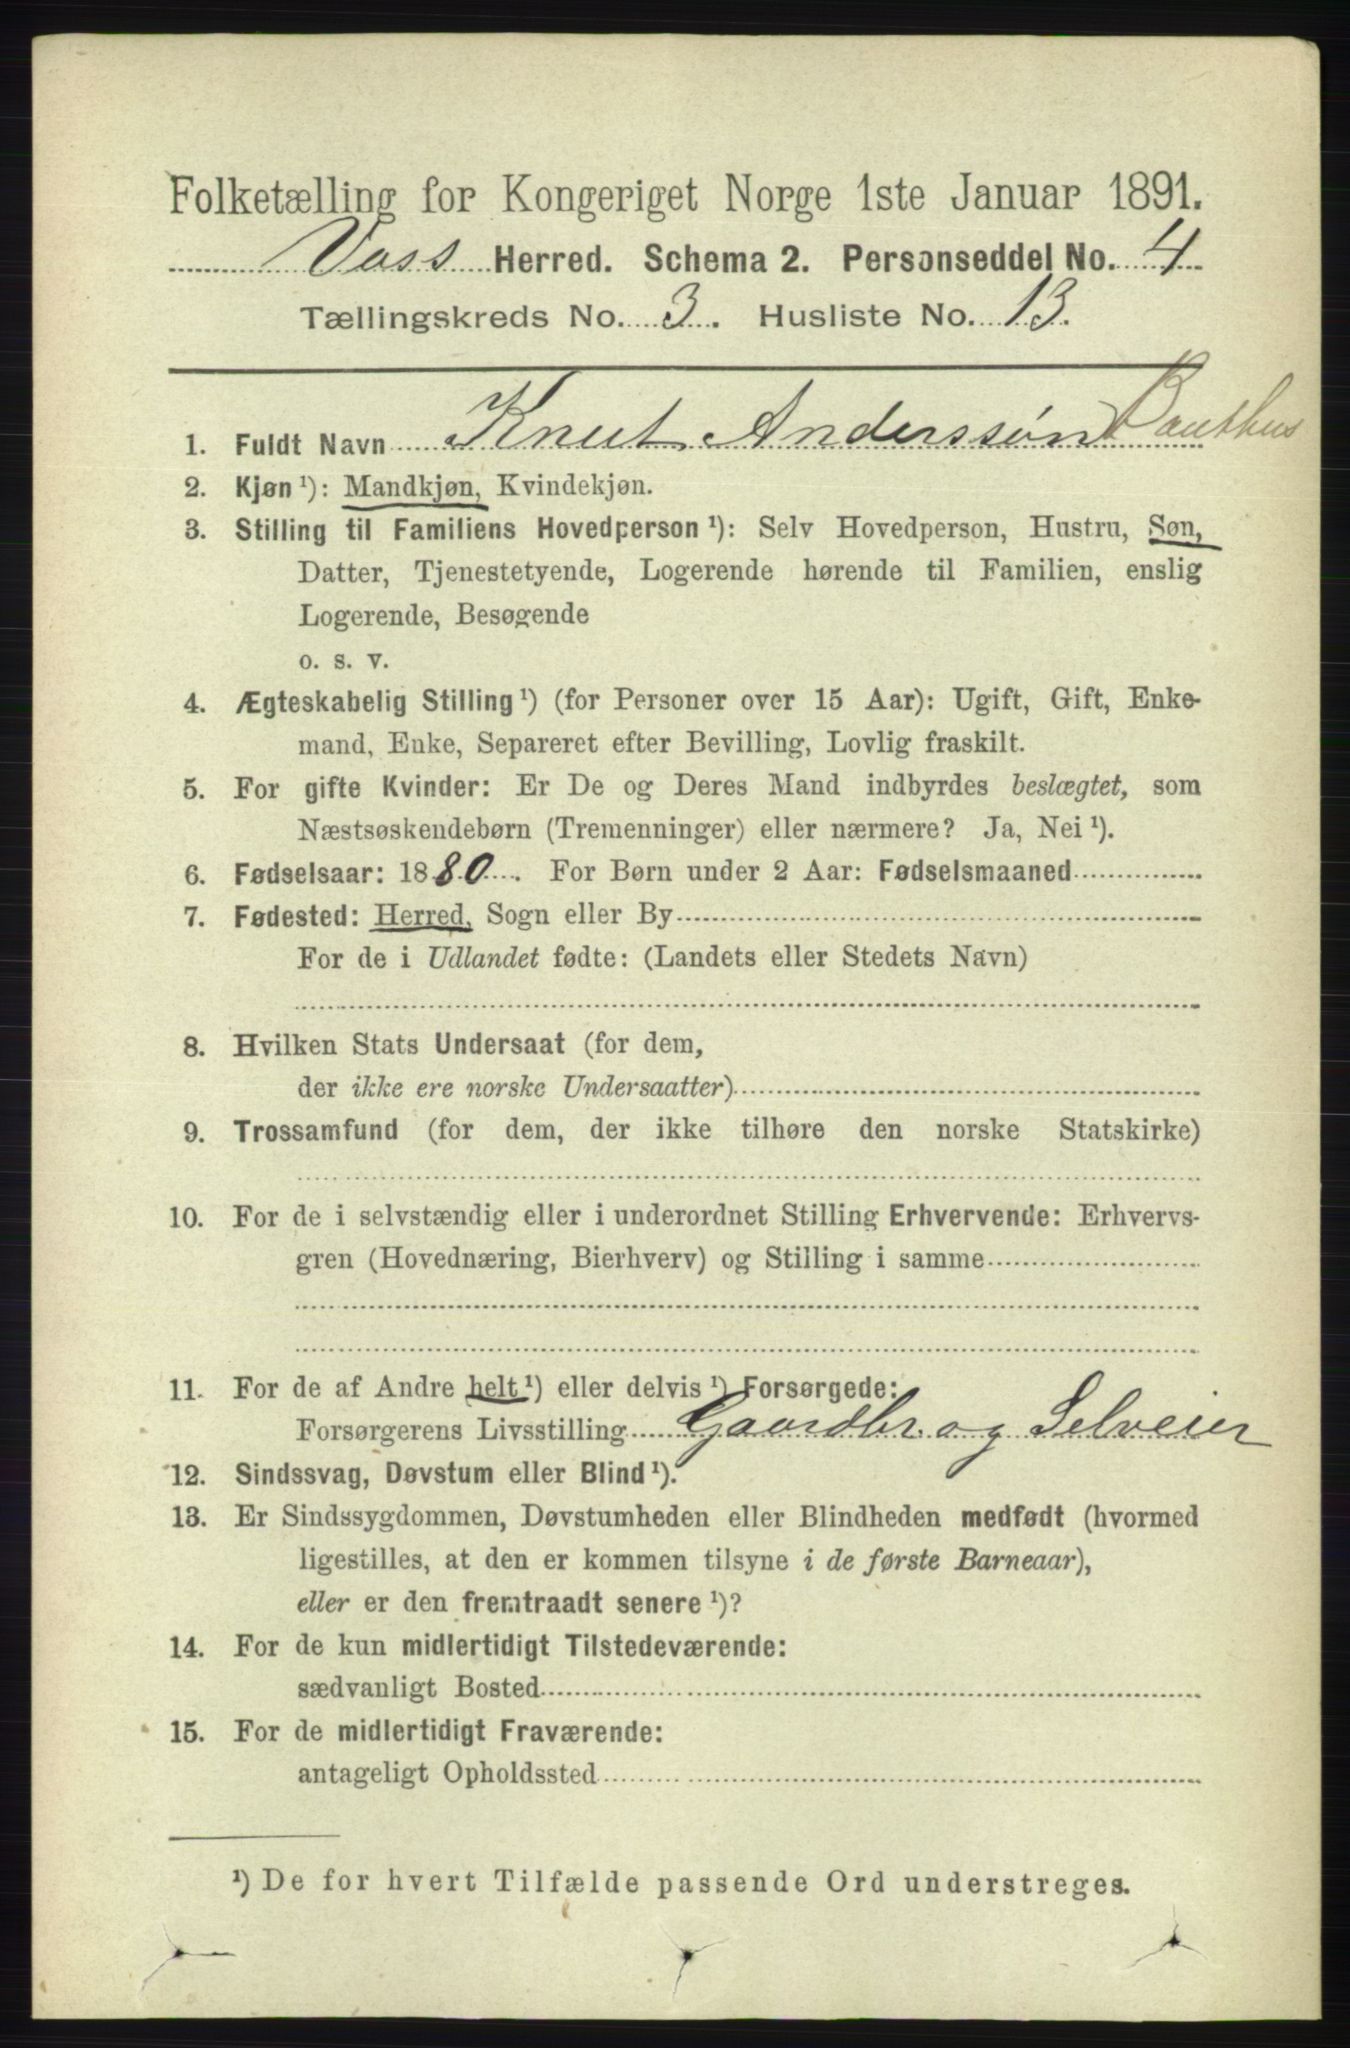 Folketælling for Kongeriget Norge 1ste Januar 1891.
Voss Herred. Schema 2. Personseddel No. 4
Tællingskreds No. 3. Husliste No. 13.
1. Fuldt Navn Knut Anderssøn
2. Kjøn ¹): Mandkjøn, Kvindekjøn.
3. Stilling til Familiens Hovedperson ¹): Selv Hovedperson, Hustru, Søn,
Datter, Tjenestetyende, Logerende hørende til Familien, enslig
Logerende, Besøgende
o. s. v.
4. Ægteskabelig Stilling ¹) (for Personer over 15 Aar): Ugift, Gift, Enke-
mand, Enke, Separeret efter Bevilling, Lovlig fraskilt.
5. For gifte Kvinder: Er De og Deres Mand indbyrdes beslægtet, som
Næstsøskendebørn (Tremenninger) eller nærmere? Ja, Nei ¹).
6. Fødselsaar: 1880. For Børn under 2 Aar: Fødselsmaaned
7. Fødested: Herred, Sogn eller By
For de i Udlandet fødte: (Landets eller Stedets Navn)
8. Hvilken Stats Undersaat (for dem,
der ikke ere norske Undersaatter)
9. Trossamfund (for dem, der ikke tilhøre den norske Statskirke)
10. For de i selvstændig eller i underordnet Stilling Erhvervende: Erhvervs-
gren (Hovednæring, Bierhverv) og Stilling i samme
11. For de af Andre helt ¹) eller delvis ¹) Forsørgede:
Forsørgerens Livsstilling Gaardbr. og Selveier
12. Sindssvag, Døvstum eller Blind ¹).
13. Er Sindssygdommen, Døvstumheden eller Blindheden medfødt (hvormed
ligestilles, at den er kommen tilsyne i de første Barneaar),
eller er den fremtraadt senere ¹)?
14. For de kun midlertidigt Tilstedeværende:
sædvanligt Bosted
15. For de midlertidigt Fraværende:
antageligt Opholdssted
¹) De for hvert Tilfælde passende Ord understreges.